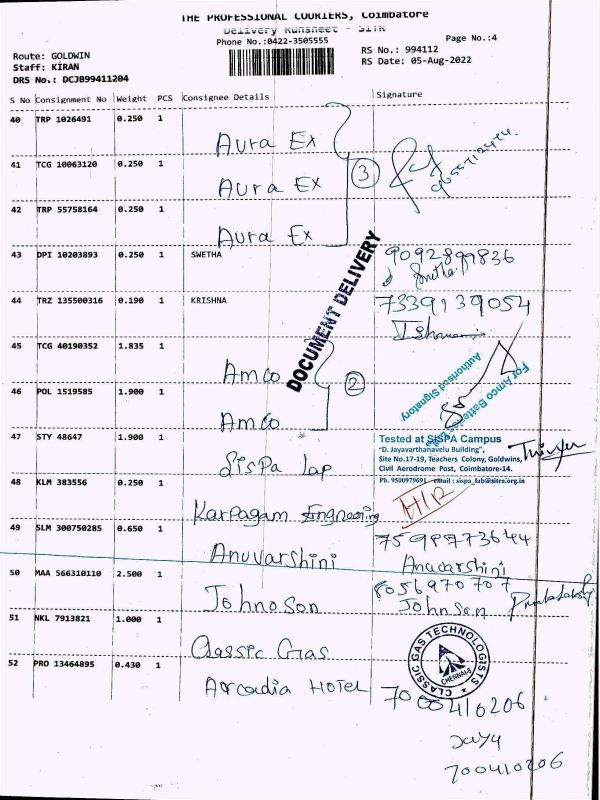 THE PROFESSIONAL COURIERS, Coimbatore
Delivery Runsheet - SITR
Phone No.:0422-3505555
Page No.:4
Route: GOLDWIN
RS No.: 994112
Staff: KIRAN
RS Date: 05-Aug-2022
DRS No.: DCJB99411204
S No Consignment No Weight PCS Consignee Details Signature
40 TRP 1026491 0.250 1
Aura Ex
41 TCG 10063120 0.250 1
Aura Ex
3
42 TRP 55758164 0.250 1
Aura Ex
43 DPI 10203893 0.250 1 SWETHA
9092899836
Swetha
44 TRZ 135500316 0.190 1 KRISHNA
7339139054
DOCUMENT DELIVERY
45 TCG 40190352 1.835 1
Amco
2
For Amco Batteries
Authorised Signatory
46 POL 1519585 1.900 1
Amco
47 STY 48647 1.900 1
Sispa Lap
Tested at SISPA Campus
"D. Jayavarthanavelu Building",
Site No.17-19, Teachers Colony, Goldwins,
Civil Aerodrome Post, Coimbatore-14.
Ph. 9500979691 email : sispa_lab@sitra.org.in
48 KLM 383556 0.250 1
Karpagam Engneering
H/R
49 SLM 300750285 0.650 1
Anuvarshini
Anuvarshini
50 MAA 566310110 2.500 1
Johnoson
8056970707
Johnson
51 NKL 7913821 1.000 1
Classic Gas
CLASSIC GAS TECHNOLOGISTS
CHENNAI
52 PRO 13464895 0.430 1
Arcadia Hotel
Jaya
700410206